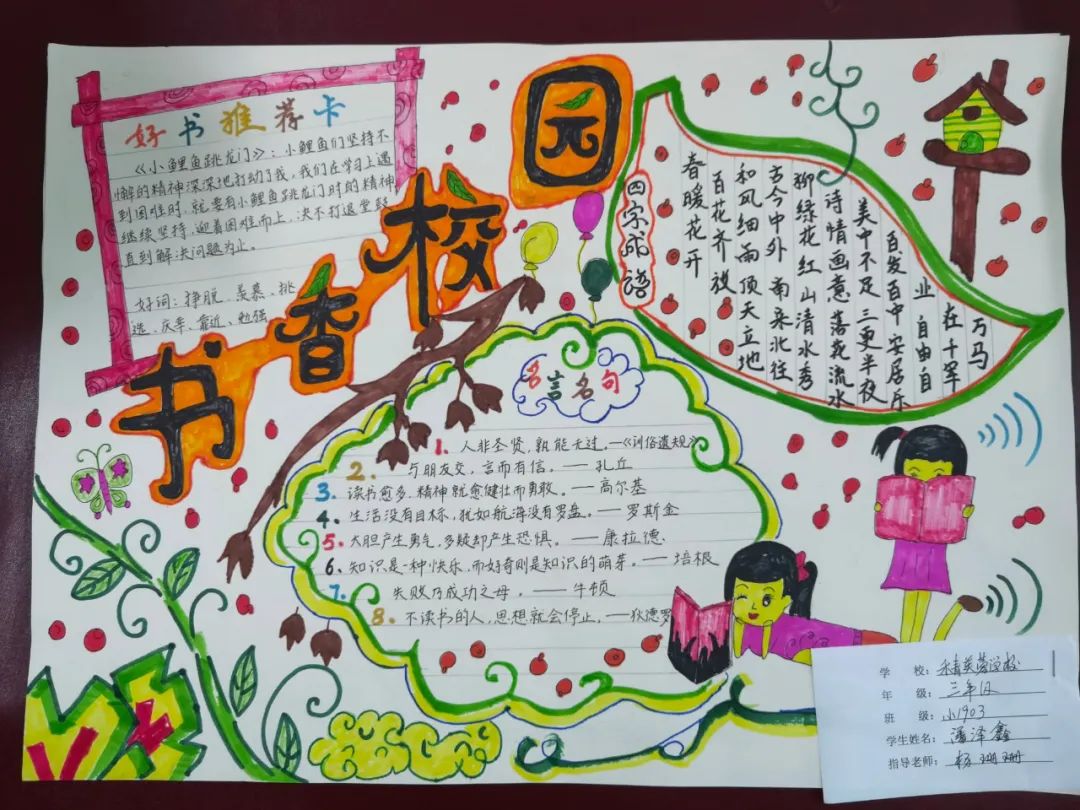 书香校园
好书推荐卡
《小鲤鱼跳龙门》：小鲤鱼们坚持不
懈的精神深深地打动了我，我们在学习上遇
到困难时，就要有小鲤鱼跳龙门时的精神，
继续坚持，迎着困难而上，决不打退堂鼓
直到解决问题为止。
好词：挣脱、羡慕、挑
选、庆幸、靠近、勉强
四字成语
春暖花开
百花齐放
和风细雨 顶天立地
古今中外 南来北往
柳绿花红 山清水秀
诗情画意 落花流水
美中不足 三更半夜
百发百中 安居乐
业 自由自
在 千军
万马
名言名句
1. 人非圣贤，孰能无过。—《训俗遗规》
2. 与朋友交，言而有信。—— 孔丘
3. 读书愈多，精神就愈健壮而勇敢。—— 高尔基
4. 生活没有目标，犹如航海没有罗盘。—— 罗斯金
5. 大胆产生勇气，多疑却产生恐惧。—— 康拉德
6. 知识是一种快乐，而好奇则是知识的萌芽。—— 培根
7. 失败乃成功之母。—— 牛顿
8. 不读书的人，思想就会停止。——狄德罗
学 校：芙蓉学校
年 级：三年级
班 级：小1903
学生姓名：潘泽鑫
指导老师：杨珊珊